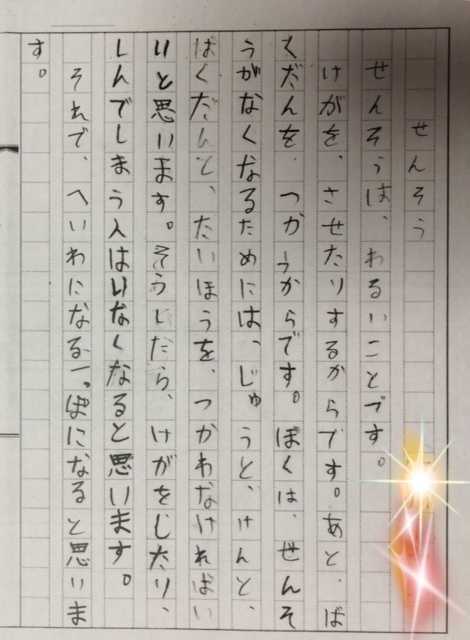 せんそう
せんそうは、わるいことです。
けがを、させたりするからです。あと、ば
くだんを、つかうからです。ぼくは、せんそ
うがなくなるためには、じゅうと、けんと、
ばくだんと、たいほうを、つかわなければい
いと思います。そうしたら、けがをしたり、
しんでしまう人はいなくなると思います。
それで、へいわになる一。ぽになると思いま
す。